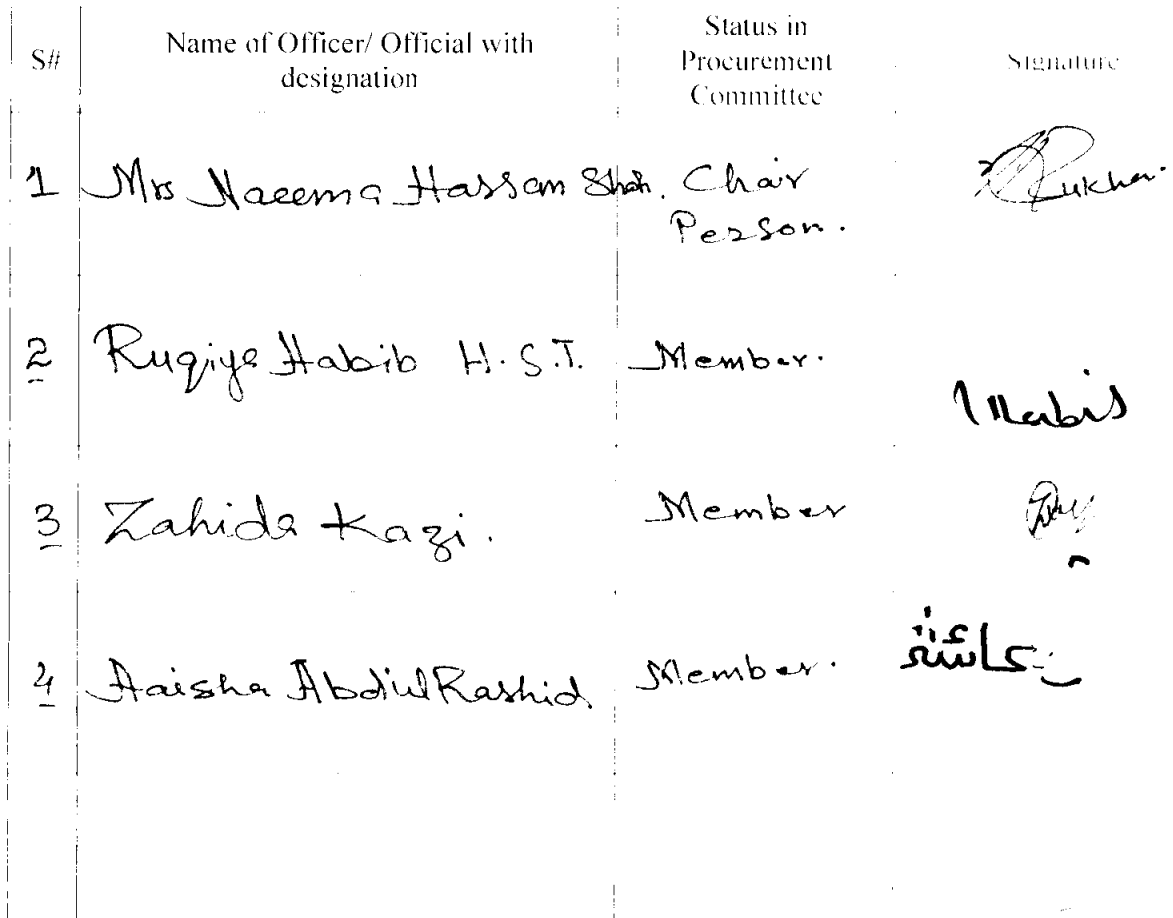 S# Name of Officer/ Official with designation Status in Procurement Committee Signature
1 Mrs Naeema Hassan Shah. Chair
Person.
2 Ruqiya Habib H.S.T. Member.
Habib
3 Zahida Kazi. Member
4 Aaisha Abdul Rashid Member. عائشہ